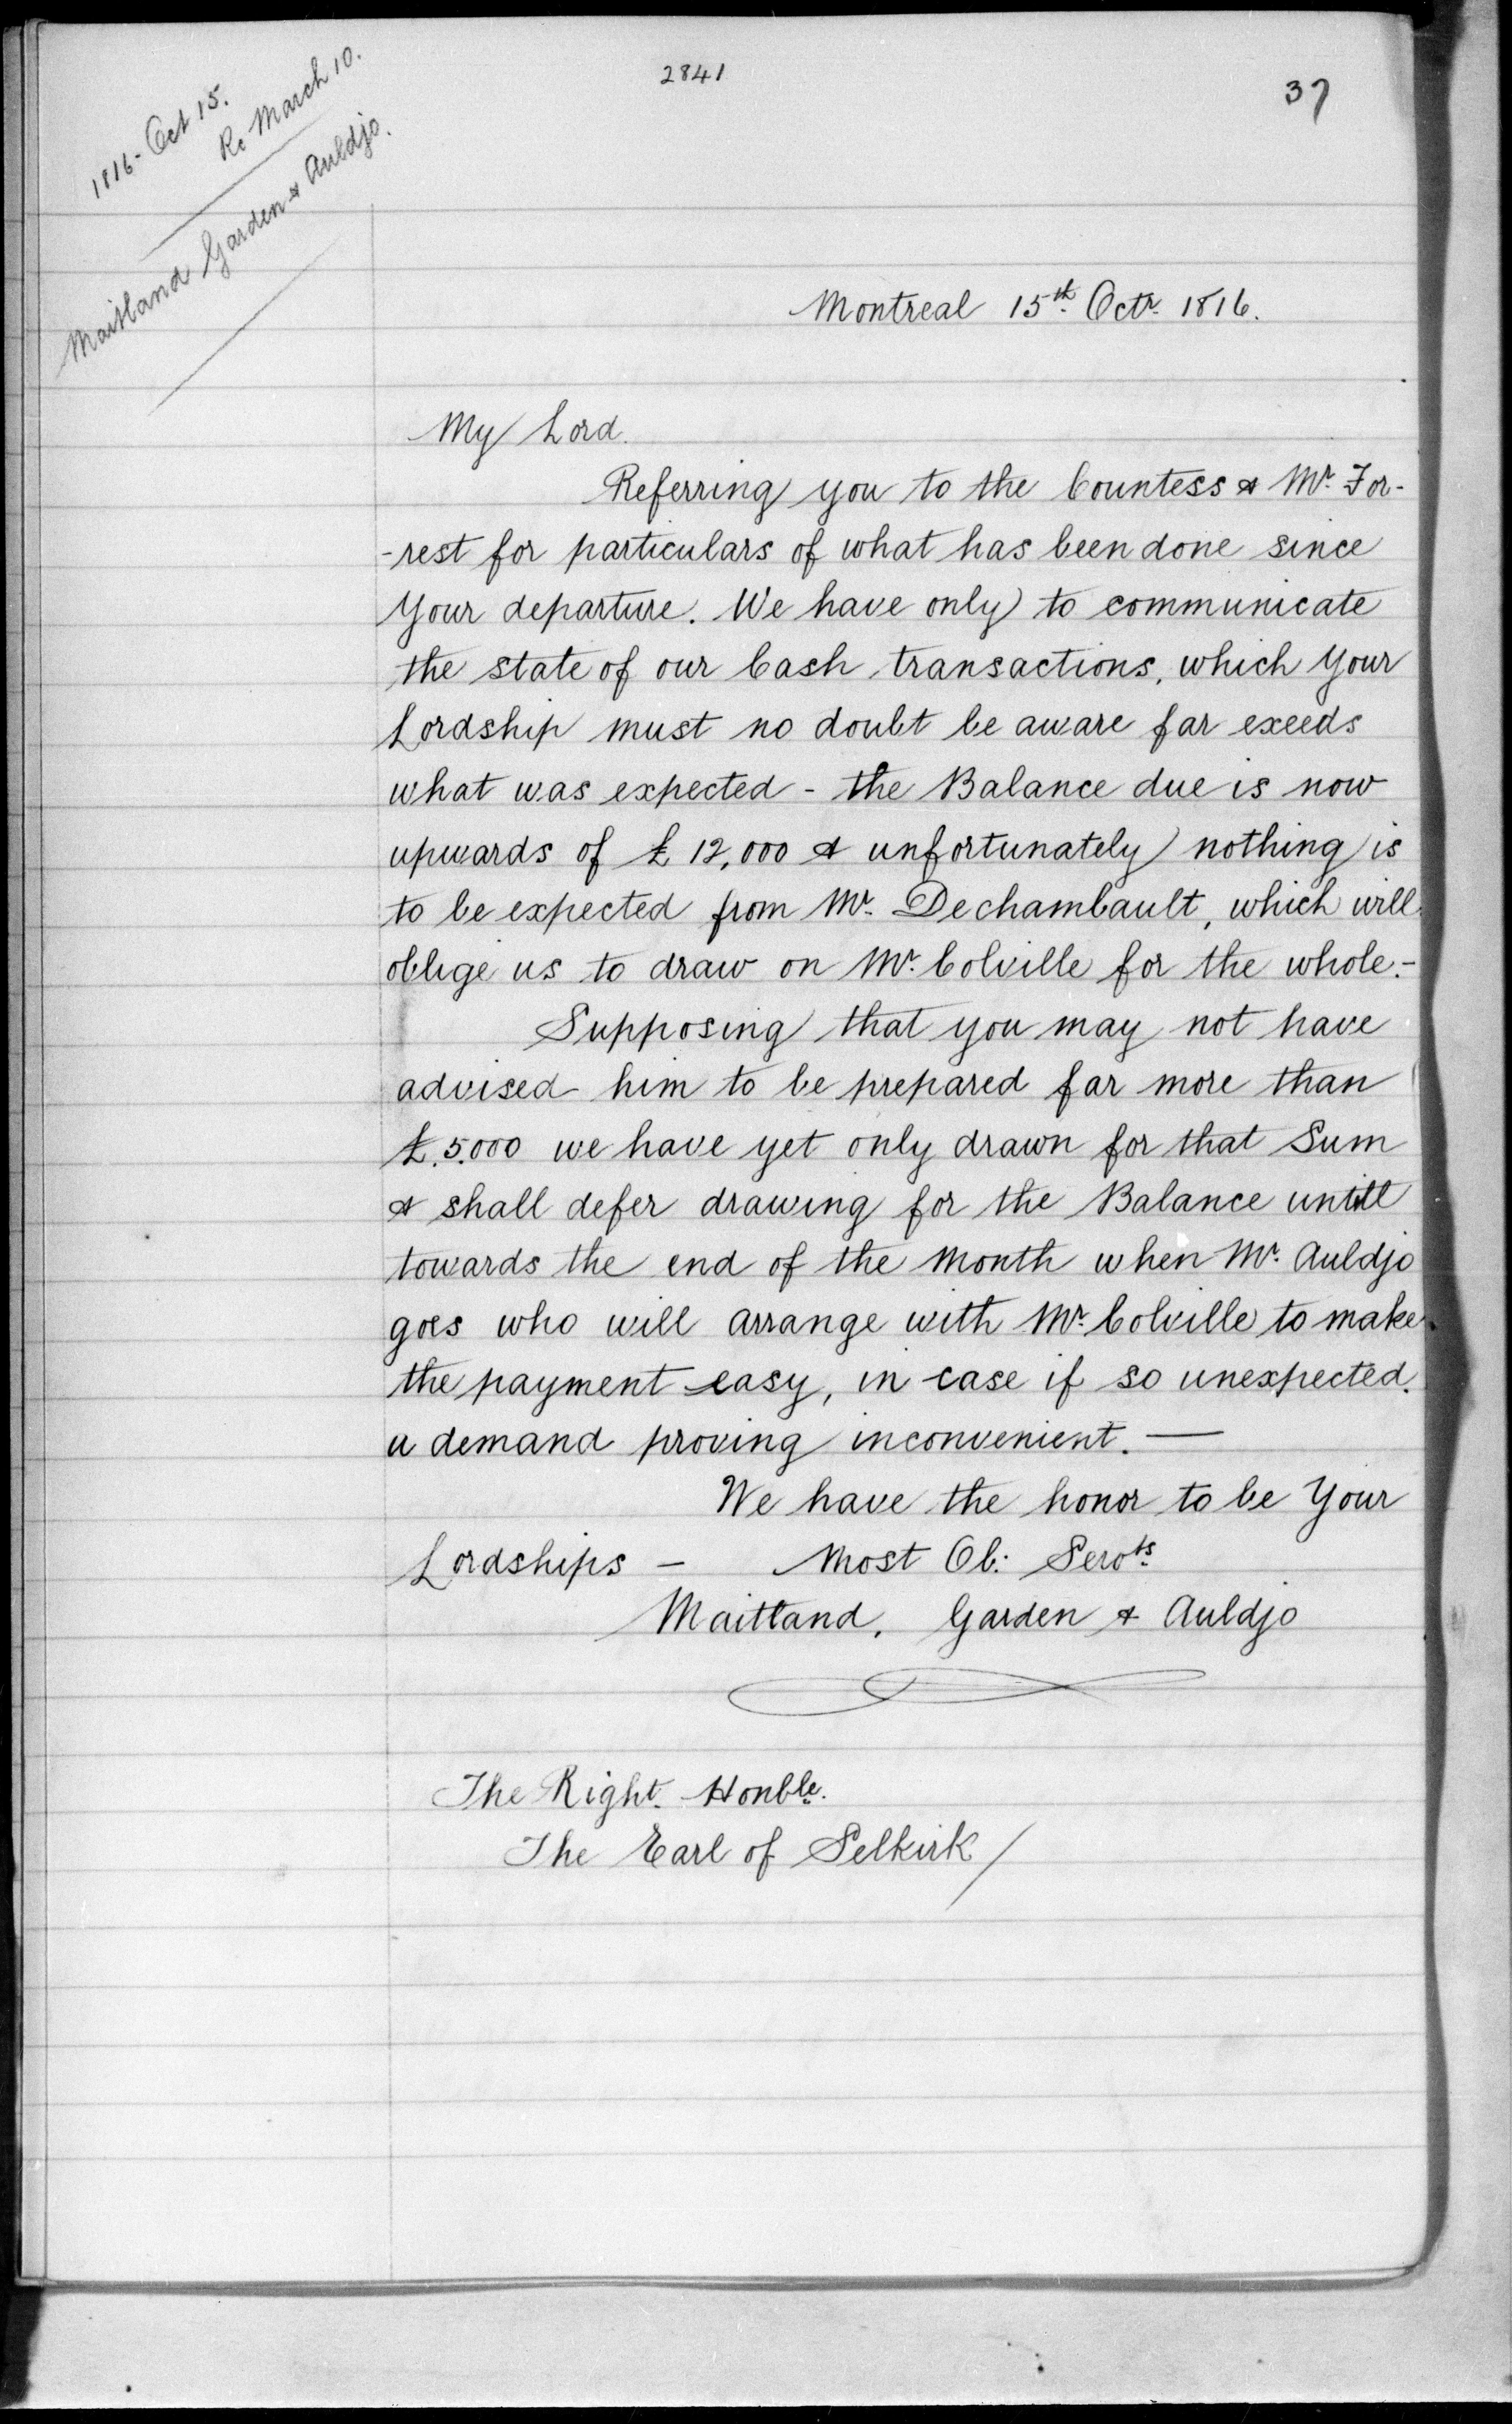 2841
37
1816 - Oct 15.
Rc March 10.
Maitland Garden & Auldjo.
Montreal 15th. Octr. 1816.
My Lord.
Referring you to the Countess & Mr. For-
-rest for particulars of what has been done since
Your departure. We have only to communicate
the state of our Cash transactions, which Your
Lordship must no doubt be aware far exeeds
what was expected - the Balance due is now
upwards of £ 12,000 & unfortunately nothing is
to be expected from Mr. Dechambault, which will
oblige us to draw on Mr. Colville for the whole.-
Supposing that you may not have
advised him to be prepared far more than
£.5.000 we have yet only drawn for that Sum
& shall defer drawing for the Balance untill
towards the end of the Month when Mr. Auldjo
goes who will arrange with Mr. Colville to make
the payment easy, in case if so unexpected.
a demand proving inconvenient. —
We have the honor to be Your
Lordships - Most Ob: Servts.
Maitland, Garden & Auldjo
The Right. Honble.
The Earl of Selkirk /